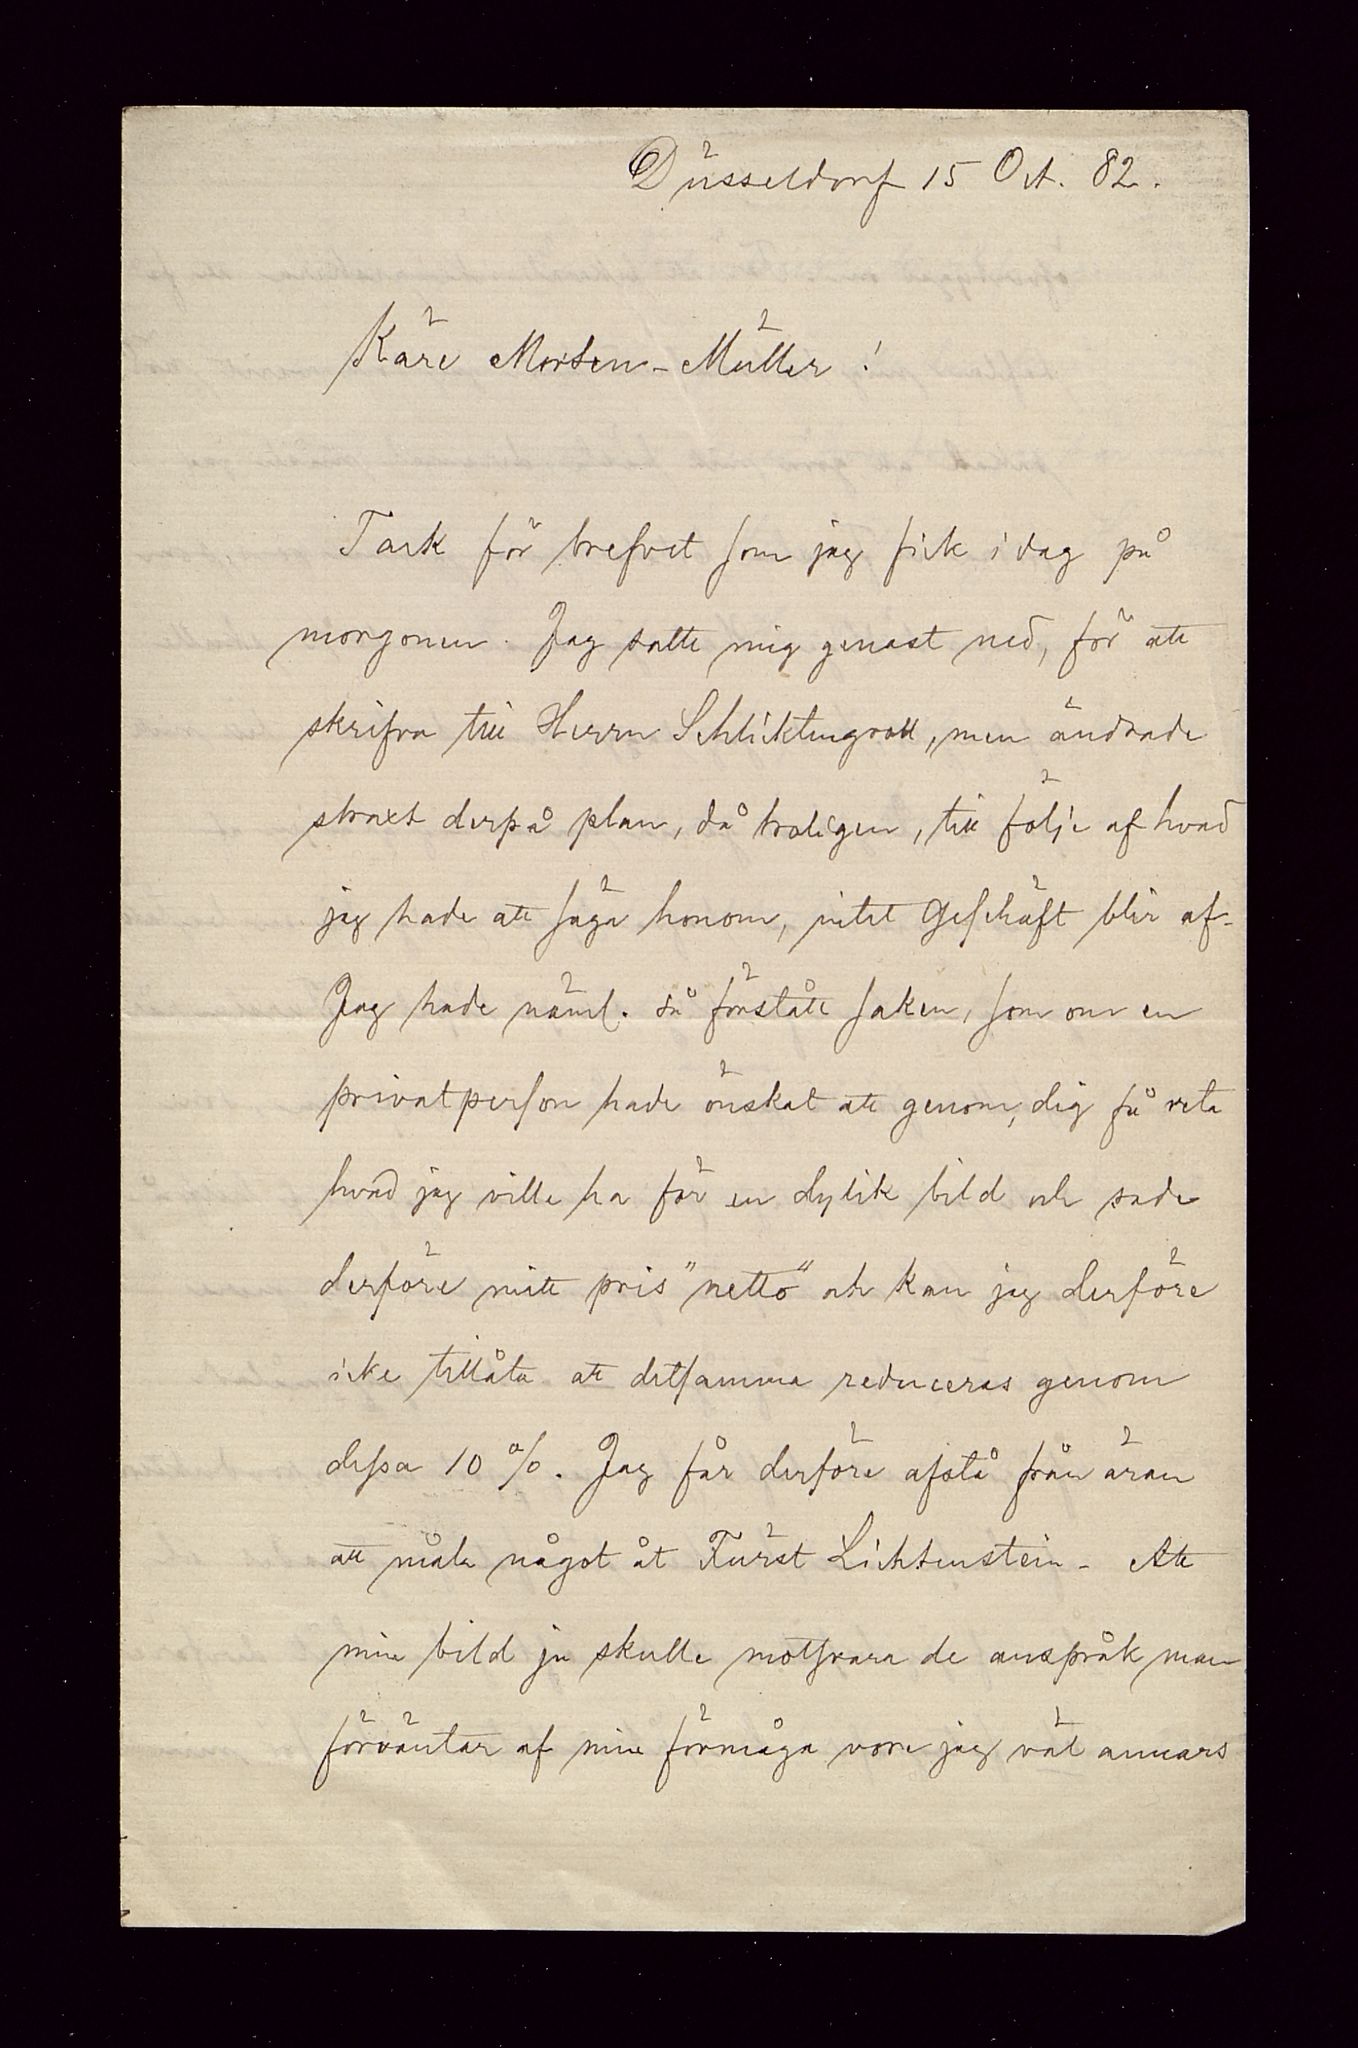 Düsseldorf 15 Oct. 82.
Käre Morten-Müller!
Tack för brefvet som jag fick i dag på
morgonen. Jag satte mig genast ned, för att
skrifva till Herrn Schlichtengroll, men ändrade
straxt derpå plan, då troligen, till följe af hvad
jag hade att säga honom, intet Geschäft blir af.
Jag hade näml. så förstått saken, som om en
privatperson hade önskat att genom dig få veta
hvad jag ville ha för en dylik bild och sade
derföre mitt pris "netto" och kan jag derföre
icke tillåta att detsamma reduceras genom
dessa 10 %. Jag får derföre afstå från äran
att måla något åt Fürst Lichtenstein - Att
min bild ju skulle motsvara de anspråk man
förväntar af min förmåga vore jag väl annars